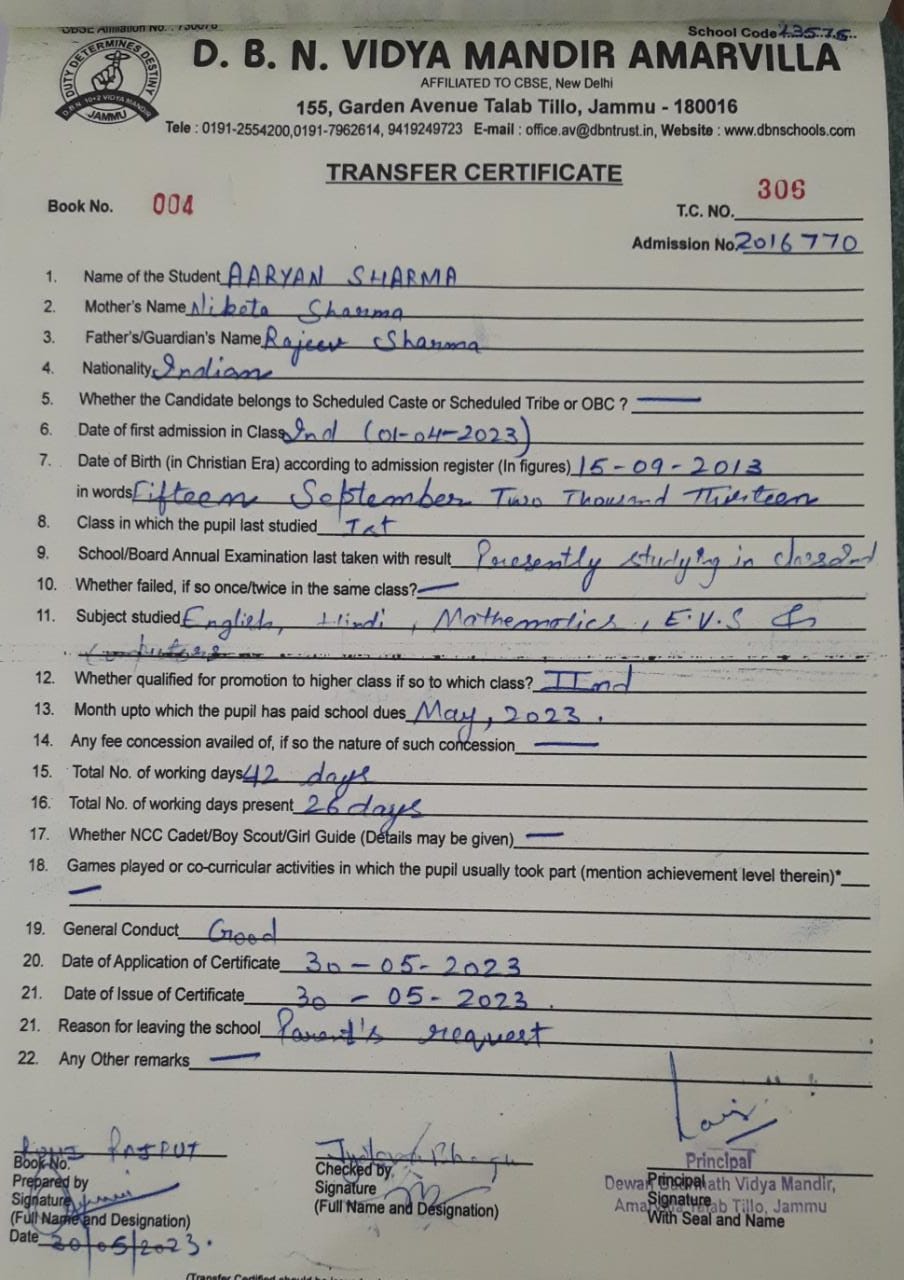 CBSE Affiliation No. : 730078
School Code 13575
DUTY DETERMINES DESTINY
D.B.N. 10+2 VIDYA MANDIR
JAMMU
D. B. N. VIDYA MANDIR AMARVILLA
AFFILIATED TO CBSE, New Delhi
155, Garden Avenue Talab Tillo, Jammu - 180016
Tele : 0191-2554200,0191-7962614, 9419249723 E-mail : office.av@dbntrust.in, Website : www.dbnschools.com
TRANSFER CERTIFICATE
Book No. 004
T.C. NO. 306
Admission No. 2016770
1. Name of the Student AARYAN SHARMA
2. Mother's Name Niketa Sharma
3. Father's/Guardian's Name Rajeev Sharma
4. Nationality Indian
5. Whether the Candidate belongs to Scheduled Caste or Scheduled Tribe or OBC ? —
6. Date of first admission in Class 2nd (01-04-2023)
7. Date of Birth (in Christian Era) according to admission register (In figures) 15-09-2013
in words Fifteen September Two Thousand Thirteen
8. Class in which the pupil last studied Ist
9. School/Board Annual Examination last taken with result Presently studying in class 2nd
10. Whether failed, if so once/twice in the same class? —
11. Subject studied English, Hindi, Mathematics, E.V.S &
Computers
12. Whether qualified for promotion to higher class if so to which class? IInd
13. Month upto which the pupil has paid school dues May, 2023.
14. Any fee concession availed of, if so the nature of such concession —
15. Total No. of working days 42 days
16. Total No. of working days present 26 days
17. Whether NCC Cadet/Boy Scout/Girl Guide (Details may be given) —
18. Games played or co-curricular activities in which the pupil usually took part (mention achievement level therein)*
—
19. General Conduct Good
20. Date of Application of Certificate 30-05-2023
21. Date of Issue of Certificate 30-05-2023.
21. Reason for leaving the school Parent's request
22. Any Other remarks —
RAJPUT
Book No.
Prepared by
Signature
(Full Name and Designation)
Date 30/05/2023.
Checked by
Signature
(Full Name and Designation)
Principal
Principal
Signature
With Seal and Name
Vidya Mandir,
Talab Tillo, Jammu